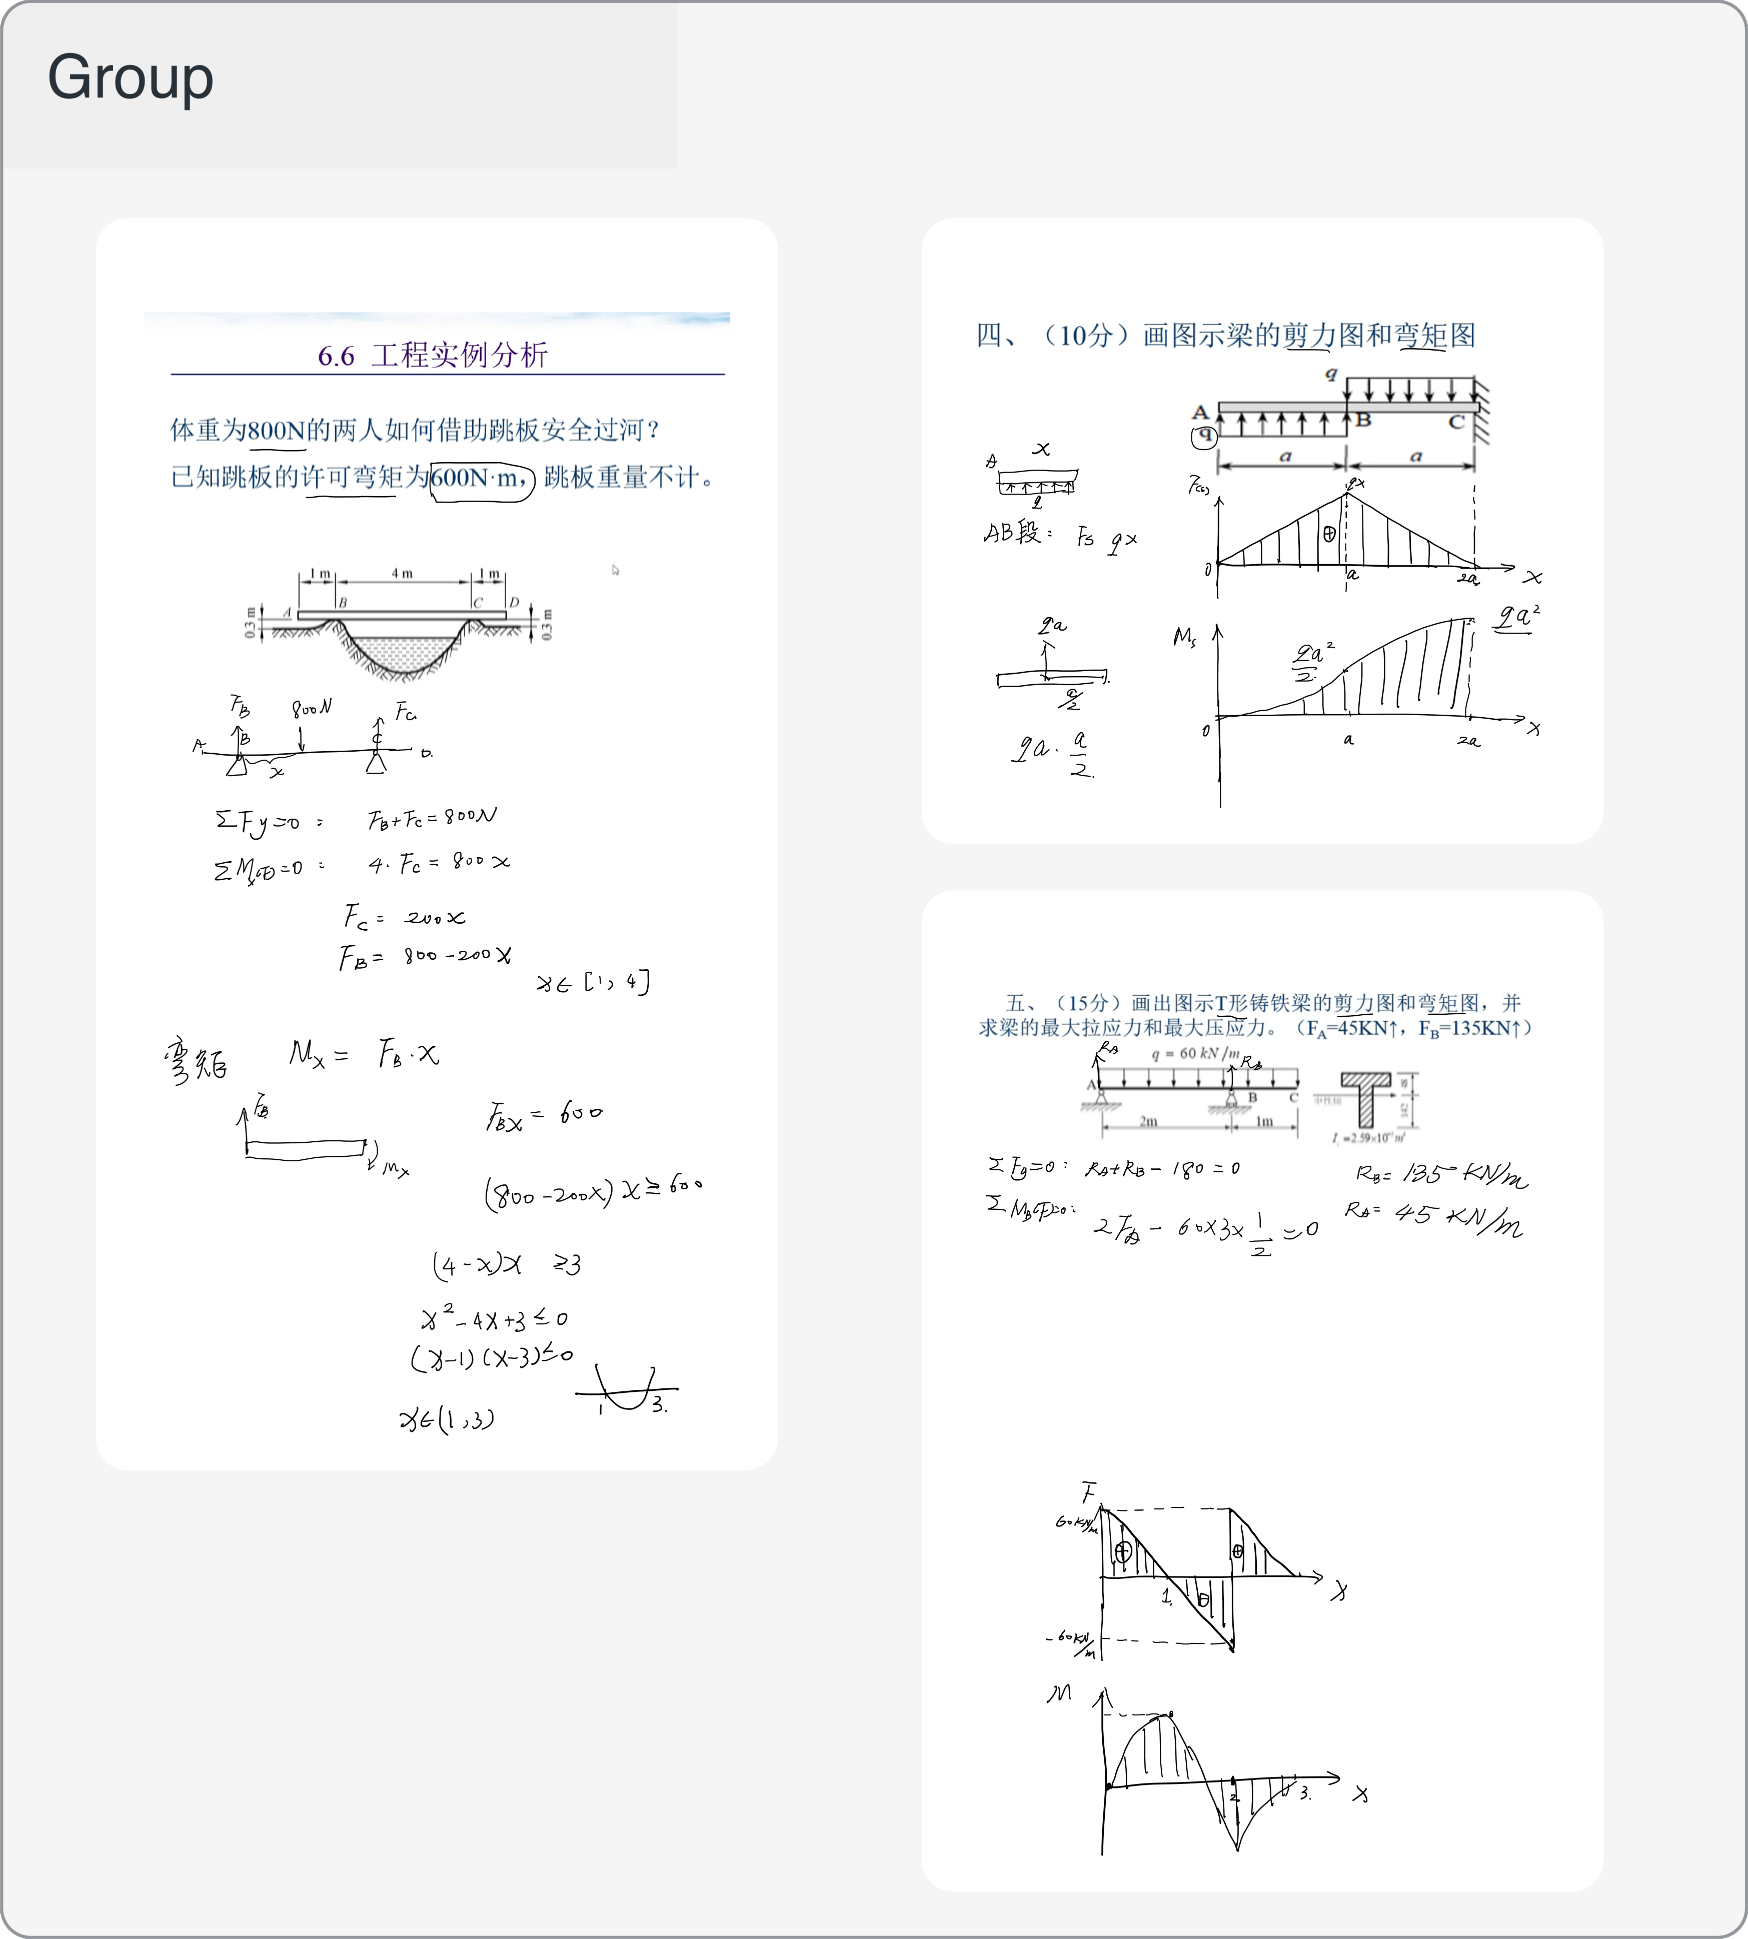 Group
6.6 工程实例分析
体重为800N的两人如何借助跳板安全过河？
已知跳板的许可弯矩为600N·m，跳板重量不计。
1 m 4 m 1 m
A B C D
0.3 m 0.3 m
F_B 800N F_C
A B C D
x
ΣFy=0： F_B+F_C=800N
4·F_C = 800x
F_C = 200x
F_B = 800-200x
x∈[1, 4]
弯矩 M_x = F_B·x
F_B
M_x
F_Bx = 600
(800-200x)x≥600
(4-x)x ≥3
x²-4x+3≤0
(x-1)(x-3)≤0
1 3.
x∈(1,3)
四、（10分）画图示梁的剪力图和弯矩图
q
A B C
q
a a
x
A
q
AB段： Fs qx
qx
0 a 2a x
qa
a/2
qa·a/2
Ms
qa²/2
qa²
0 a 2a x
五、（15分）画出图示T形铸铁梁的剪力图和弯矩图，并
求梁的最大拉应力和最大压应力。（F_A=45KN↑，F_B=135KN↑）
R_A q = 60 kN/m R_B
A B C
2m 1m
中性轴
142
ΣFy=0： R_A+R_B-180=0
R_B= 135 KN/m
2F_A - 60×3×1/2=0
R_A= 45 KN/m
F
60KN/m
1. x
-60KN/m
M
2 3. x